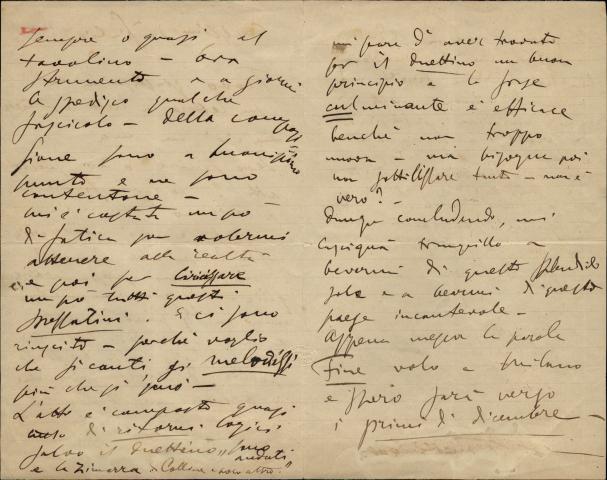 sempre o quasi al
tavolino – ora
strumento e a giorni
le spedisco qualche
fascicolo – della compo
sizione sono a buonissimo
punto e ne sono
contentone –
mi è costato un po'
di fatica per volermi
attenere alla realtà
e poi per liricizzare
un po' tutti questi
spezzatini. E ci sono
riuscito – perché voglio
che si canti, si melodizzi
più che si può –
L'atto è composto quasi
tutto di ritorni logici
salvo il duettino "sono
andati"
e la Zimarra di Colline e poco altro.
mi pare d'aver trovato
per il duettino un buon
principio e la frase
culminante è efficace
benché non troppo
nuova – ma bisogna poi
non sottilizzare tanto – non è
vero? –
Dunque concludendo, mi
lasci quà tranquillo a
bevermi di questo splendido
sole e a bearmi di questo
paese incantevole –
Appena messa la parola
Fine volo a Milano
e spero sarà verso
i primi di dicembre –